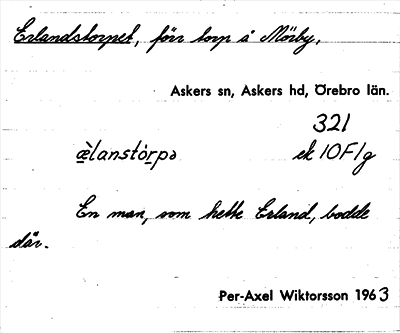 Erlandstorpet, förr torp å Mörby,
Askers sn, Askers hd, Örebro län.
321
æ̀lanstòrpə ek 10F1g
En man, som hette Erland, bodde
där.
Per-Axel Wiktorsson 1963